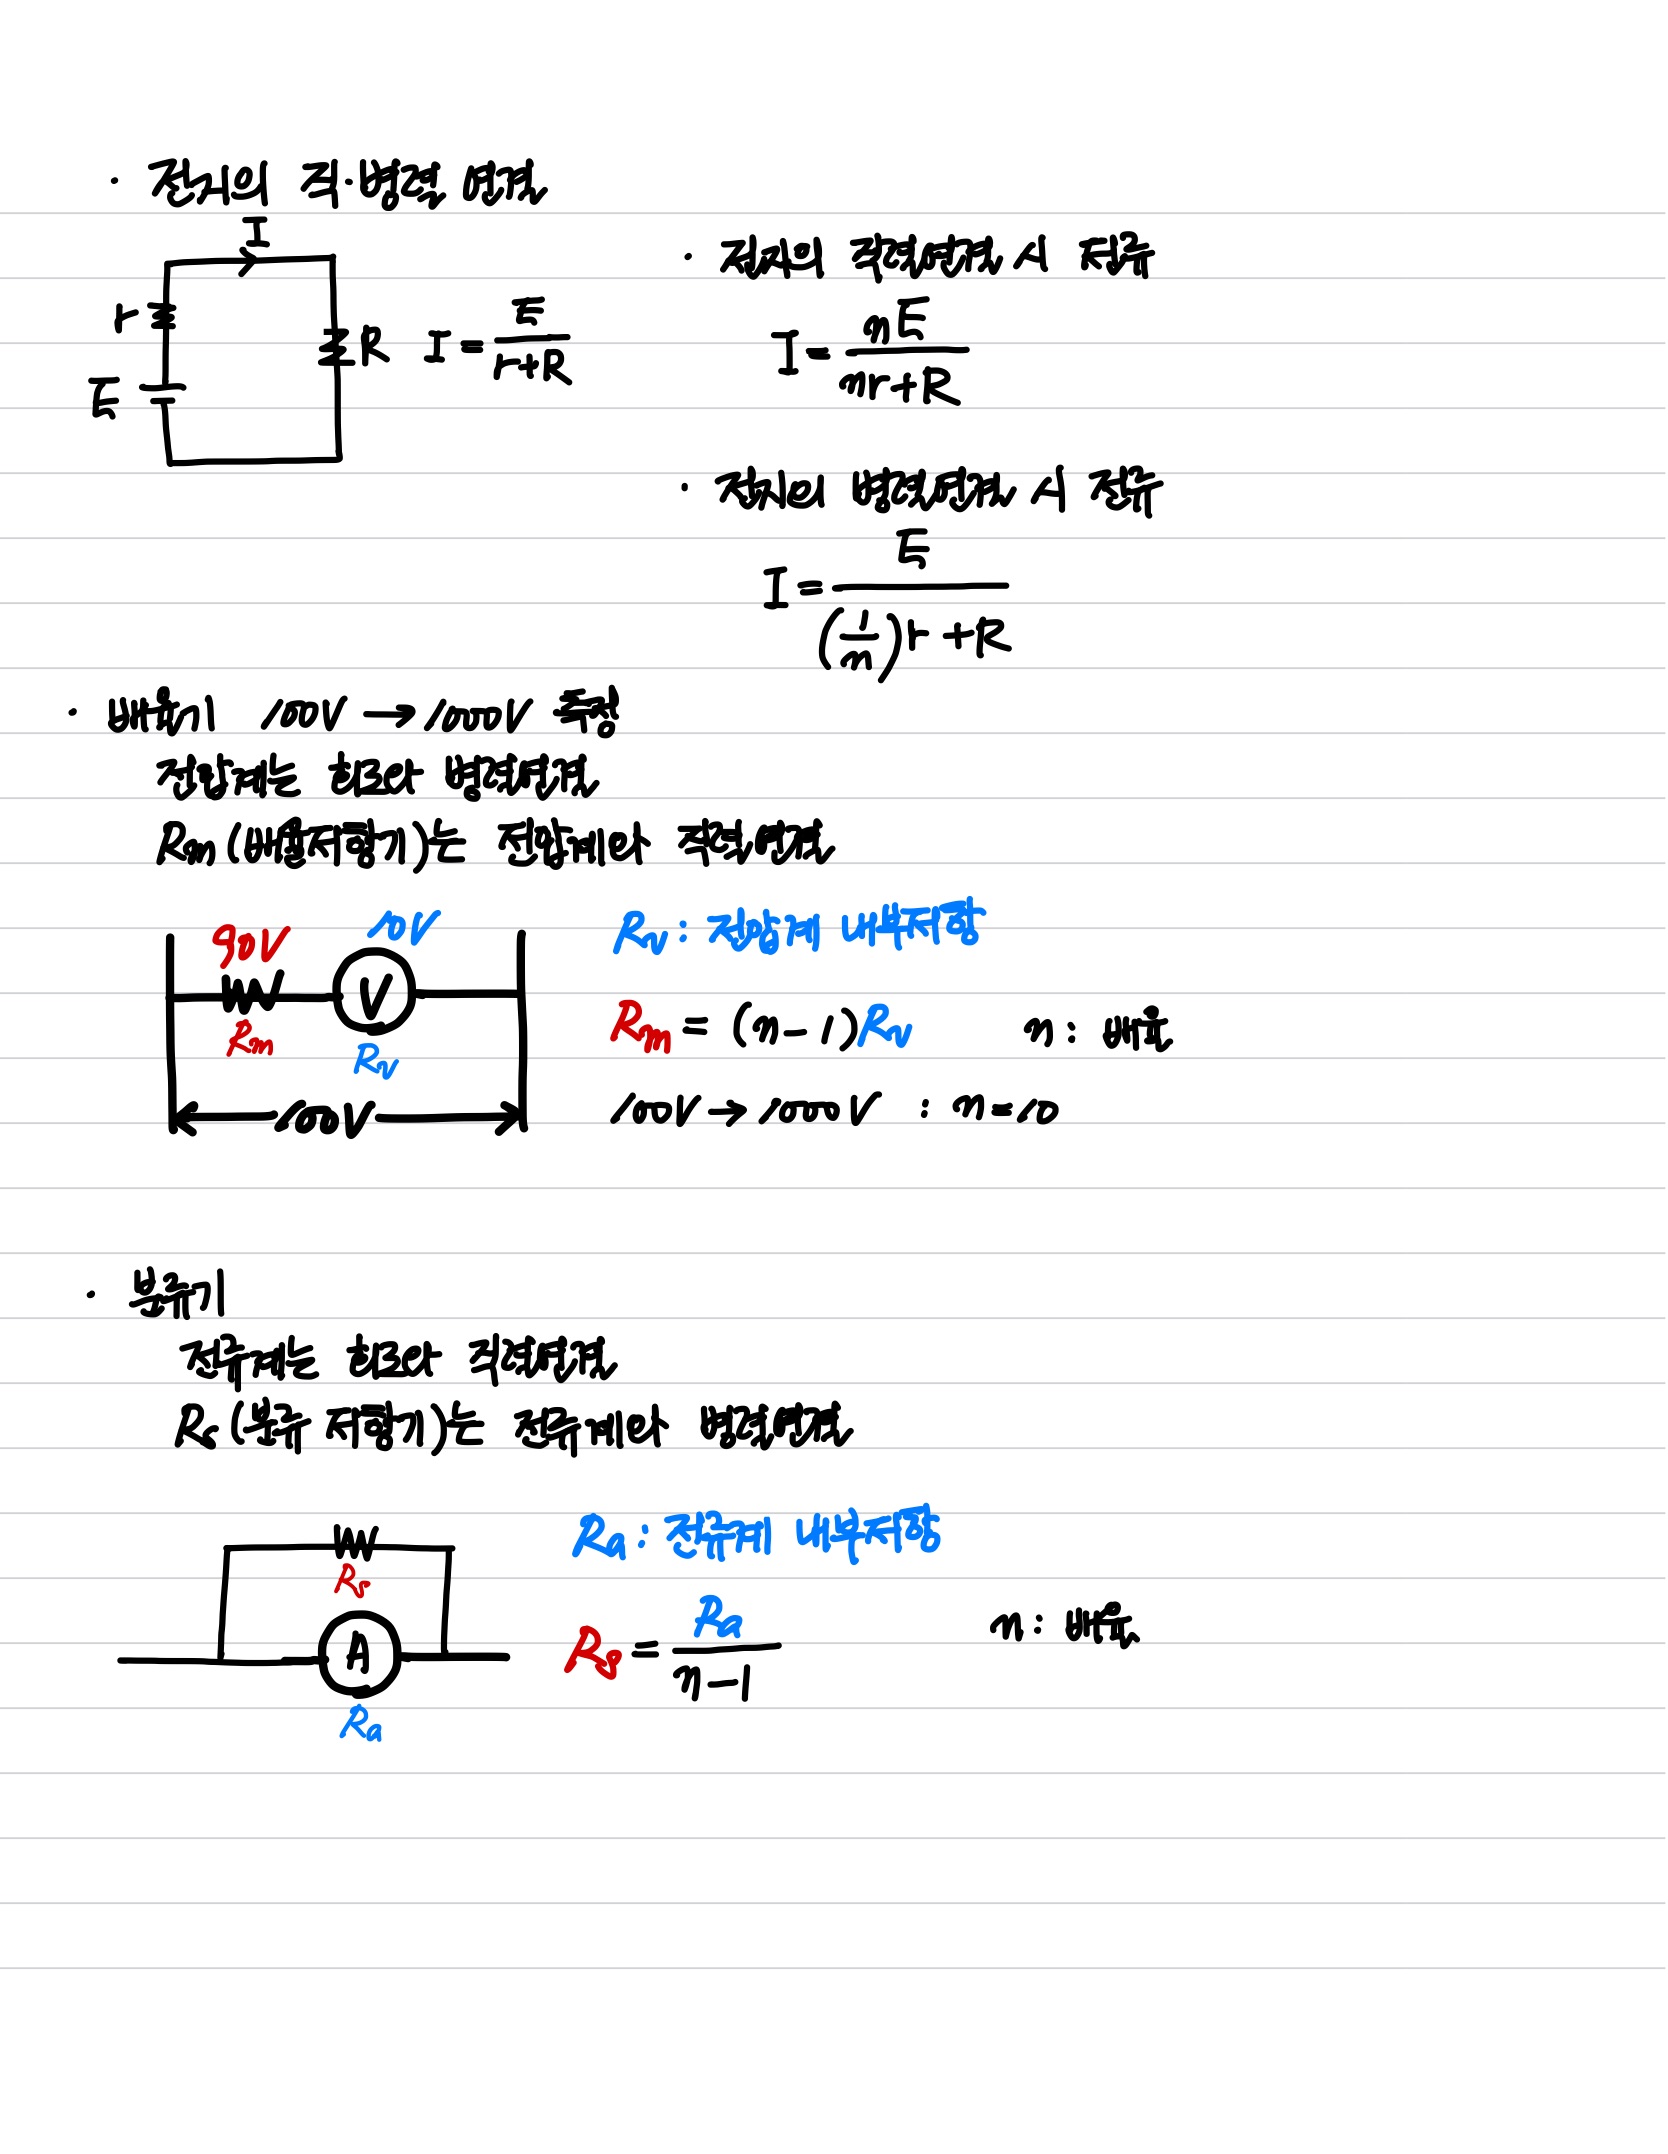 · 전지의 직·병렬 연결
I
r
R
E
I = E/(r+R)
· 전지의 직렬연결 시 전류
I = nE/(nr+R)
· 전지의 병렬연결 시 전류
I = E/((1/n)r + R)
· 배율기 100V → 1000V 측정
전압계는 회로와 병렬연결
Rm (배율저항기)는 전압계와 직렬연결
90V 10V
V
Rm Rv
100V
Rv : 전압계 내부저항
Rm = (n-1)Rv n : 배율
100V → 1000V : n=10
· 분류기
전류계는 회로와 직렬연결
Rs (분류 저항기)는 전류계와 병렬연결
Rs
A
Ra
Ra : 전류계 내부저항
Rs = Ra/(n-1) n : 배율